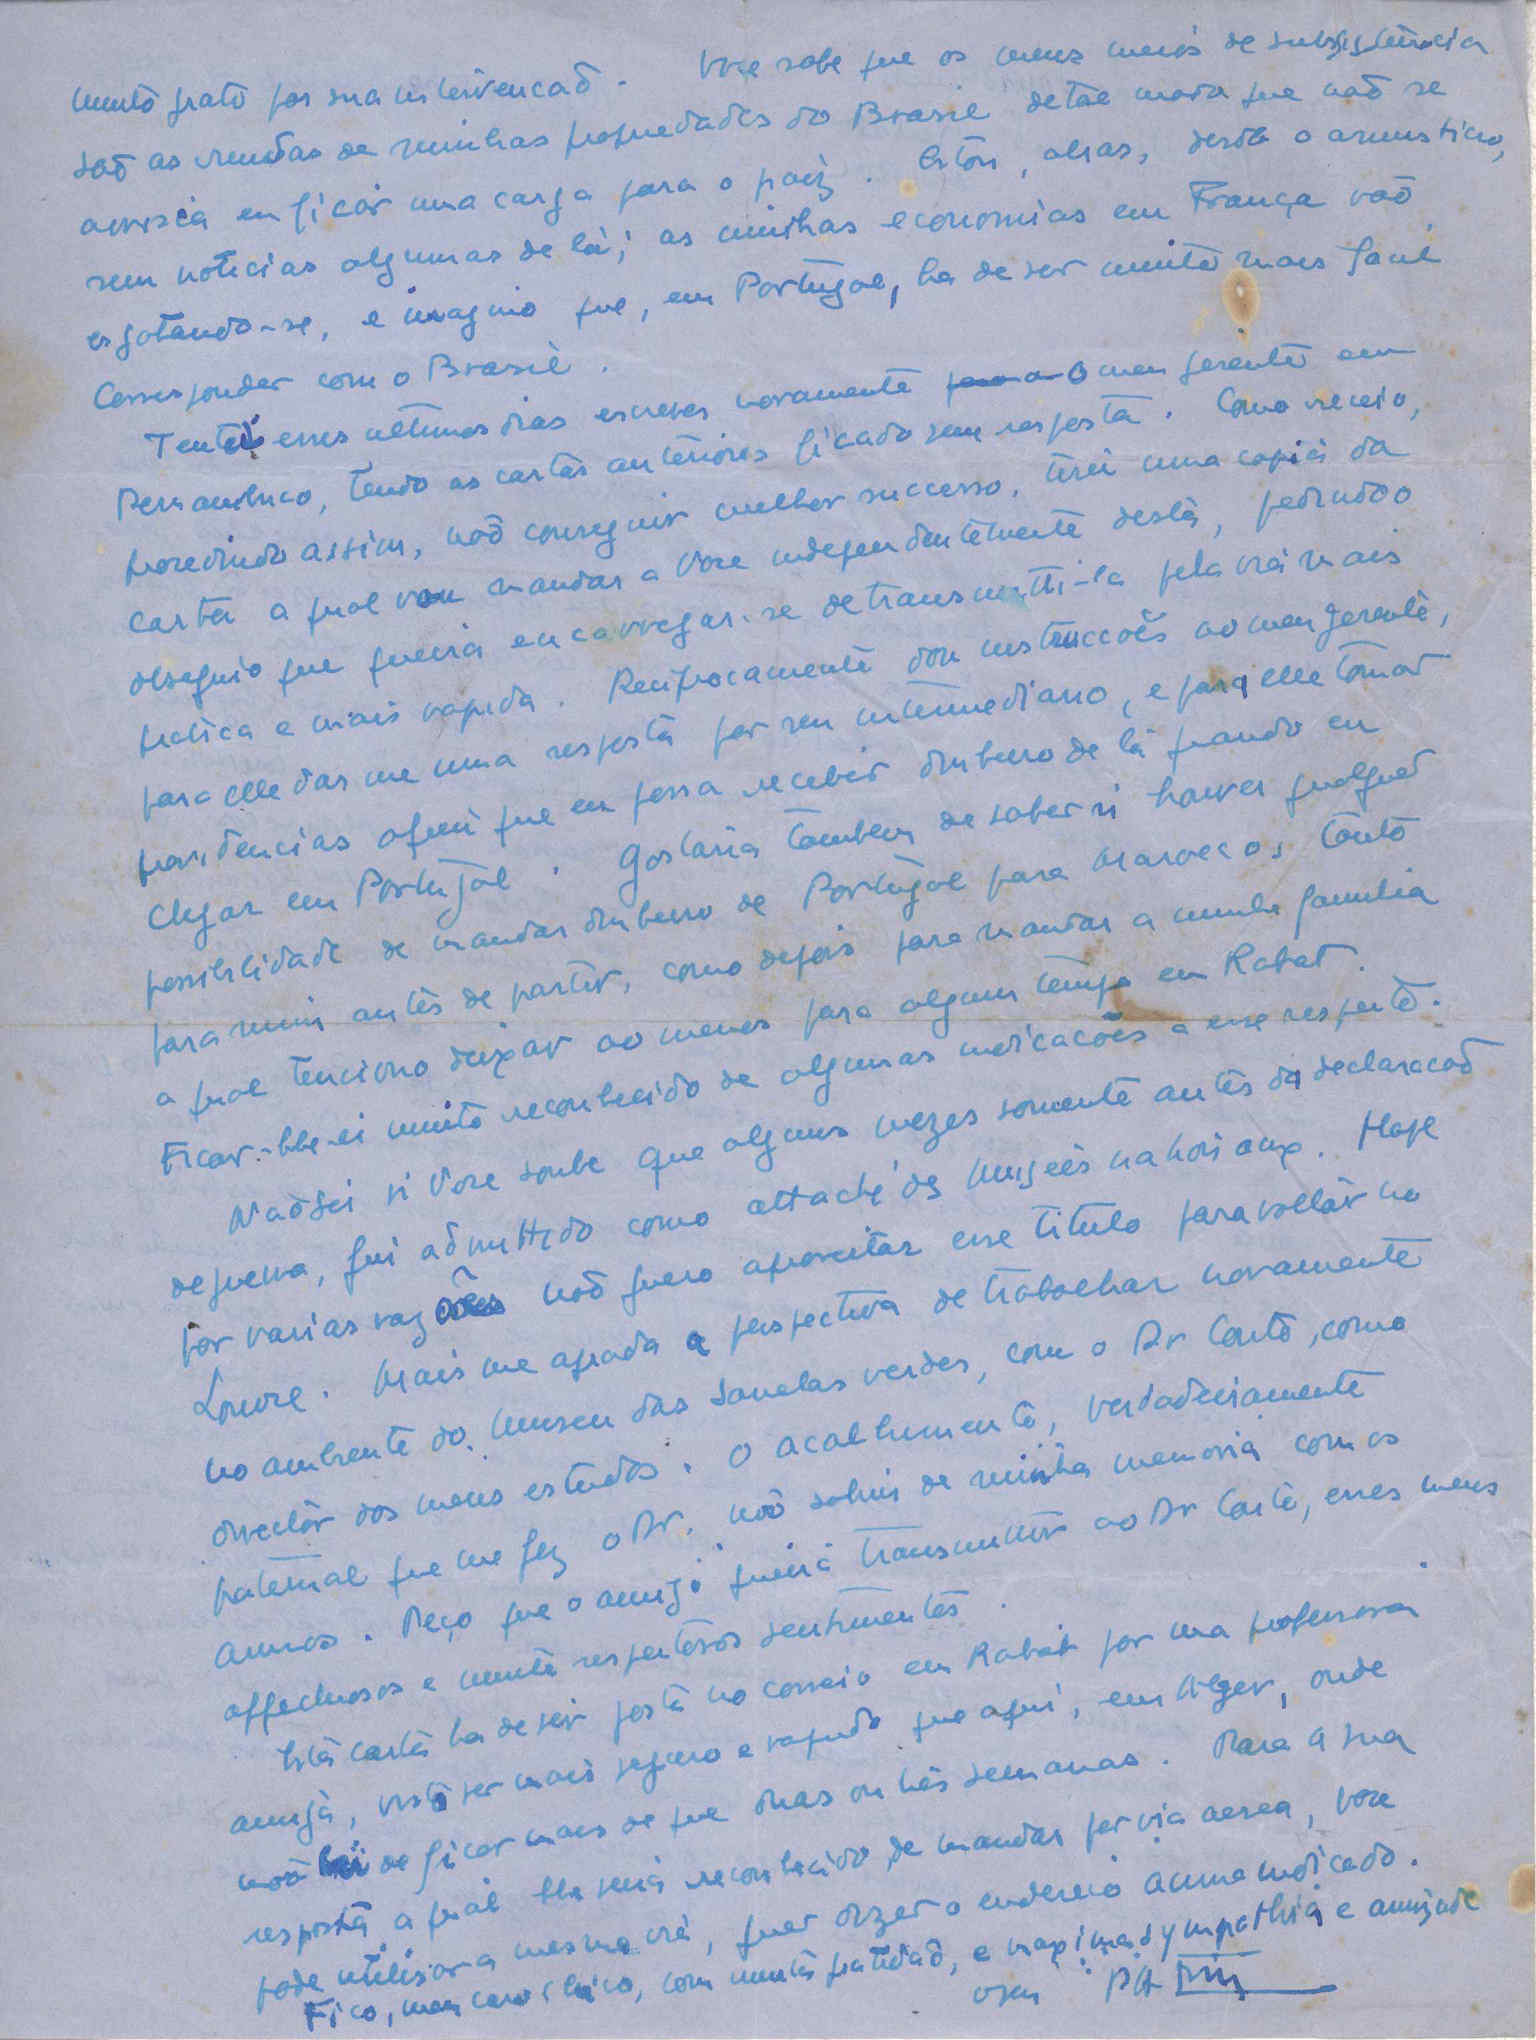 muito grato por sua intervencaõ. Voce sabe que os meus meios de subsistencia
saõ as rendas de minhas propriedades do Brasil de tal moda que naõ se
arrisca eu ficar uma carga para o paiz. Estou, alias, desde o armisticio,
sem noticias algumas de lá; as minhas economias em França vaõ
esgotando-se, e imagino que, em Portugal, ha de ser muito mais facil
Corresponder com o Brasil.
Tentei esses ultimos dias escrever novamente para o o meu gerente em
Pernambuco, tendo as cartas anteriores ficado sem resposta. Como receio,
procedindo assim, naõ conseguir melhor successo, tirei uma copia da
carta a qual vou mandar a Voce independentemente desta, pedindo o
obsequio que queira encarregar-se de transmitti-la pela via mais
pratica e mais rapida. Reciprocamente dou instruccoẽs ao meu gerente,
para elle dar me uma resposta por seu intermediario, e para elle tomar
providencias afim que eu possa receber dinheiro de lá quando eu
chegar em Portugal. Gostaria tambem de saber si houver qualquer
possibilidade de mandar dinheiro de Portugal para Marrocos, tanto
para mim antes de partir, como depois para mandar a minha familia
a qual tenciono deixar ao menos para algum tempo em Rabat.
Ficar-lhe-ei muito reconhecido de algumas indicacoẽs a esse respeito.
Naõ sei si Voce soube que alguns mezes somente antes da declaracaõ
de guerra, fui admittido como attaché des Musées nationaux. Hoje
por varias razoẽs naõ quero aproveitar esse titulo para voltar no
Louvre. Mais me agrada a perspectiva de trabalhar novamente
no ambiente do Museu das Janelas verdes, com o Dr Couto, como
director dos meus estudos. O acolhimento, verdadeiramente
paternal que me fez o Dr. naõ sahiu de minha memoria com os
annos. Peço que o amigo queira transmittir ao Dr Couto, esses meus
affectuosos e muito respeitosos sentimentos.
Esta carta ha de ser posta no correio em Rabat por uma professora
amiga, visto ser mais seguro e rapido que aqui, em Alger, onde
naõ hei de ficar mais de que duas ou trés semanas. Para a sua
resposta a qual lhe seria reconhecido de mandar por via aerea, voce
pode utilisar a mesma via, quer dizer o endereço acima indicado.
Fico, meu caro Chico, com muita gratidaõ, e maxima sympathia e amizade
o seu